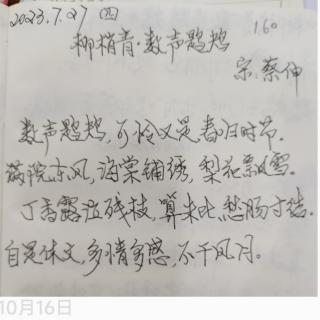 2023.7.27 (四)
160
柳梢青·数声鶗鴂
宋:蔡伸
数声鶗鴂,可怜又是春归时节。
满院东风,海棠铺绣,梨花飘雪。
丁香露泣残枝,算未比、愁肠寸结。
自是休文,多情多感,不干风月。
10月16日